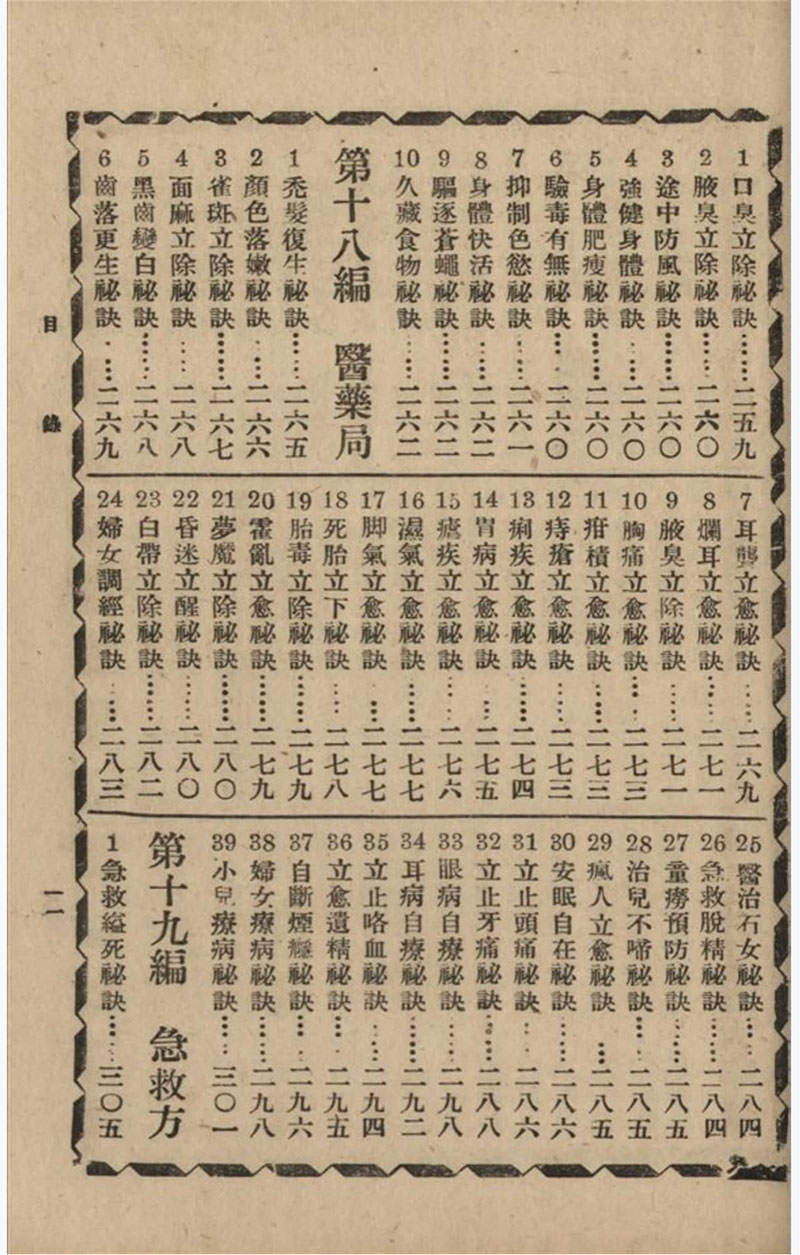 1 口臭立除祕訣……二五九
2 腋臭立除祕訣……二六〇
3 途中防風祕訣……二六〇
4 強健身體祕訣……二六〇
5 身體肥瘦祕訣……二六〇
6 驗毒有無祕訣……二六〇
7 抑制色慾祕訣……二六一
8 身體快活祕訣……二六二
9 驅逐蒼蠅祕訣……二六二
10 久藏食物祕訣……二六二
第十八編 醫藥局
1 禿髮復生祕訣……二六五
2 顏色落嫩祕訣……二六六
3 雀斑立除祕訣……二六七
4 面麻立除祕訣……二六八
5 黑齒變白祕訣……二六八
6 齒落更生祕訣……二六九
7 耳聾立愈祕訣……二六九
8 爛耳立愈祕訣……二七一
9 腋臭立除祕訣……二七一
10 胸痛立愈祕訣……二七三
11 疳積立愈祕訣……二七三
12 痔瘡立愈祕訣……二七三
13 痢疾立愈祕訣……二七四
14 胃病立愈祕訣……二七五
15 瘧疾立愈祕訣……二七六
16 濕氣立愈祕訣……二七七
17 脚氣立愈祕訣……二七七
18 死胎立下祕訣……二七八
19 胎毒立除祕訣……二七九
20 霍亂立愈祕訣……二七九
21 夢魔立除祕訣……二八〇
22 昏迷立醒祕訣……二八〇
23 白帶立除祕訣……二八二
24 婦女調經祕訣……二八三
25 醫治石女祕訣……二八四
26 急救脫精祕訣……二八四
27 童癆預防祕訣……二八五
28 治兒不啼祕訣……二八五
29 瘋人立愈祕訣……二八五
30 安眠自在祕訣……二八六
31 立止頭痛祕訣……二八六
32 立止牙痛祕訣……二八八
33 眼病自療祕訣……二九八
34 耳病自療祕訣……二九二
35 立止咯血祕訣……二九四
36 立愈遺精祕訣……二九五
37 自斷煙癮祕訣……二九六
38 婦女療病祕訣……二九八
39 小兒療病祕訣……三〇一
第十九編 急救方
1 急救縊死祕訣……三〇五
目錄
一一